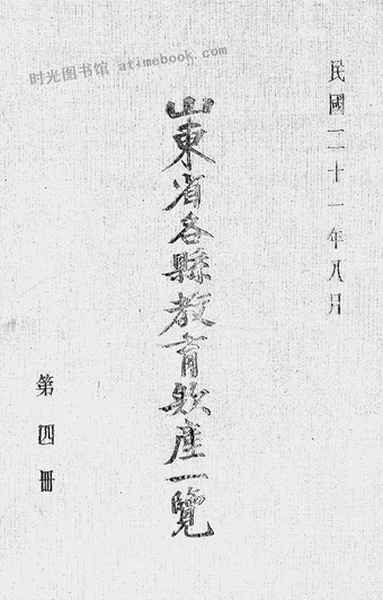 时光图书馆 atimebook.com
民國二十一年八月
山東省各縣教育款產一覽
第四冊